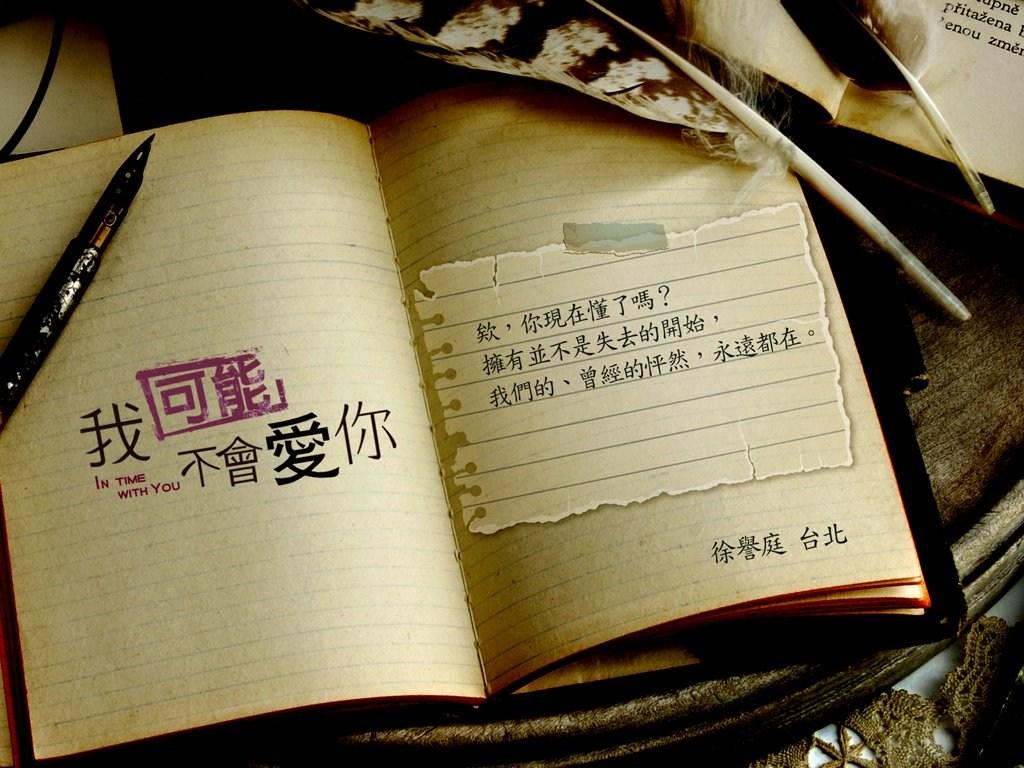 我「可能」
不會愛你
IN TIME
WITH YOU
欸，你現在懂了嗎？
擁有並不是失去的開始，
我們的、曾經的怦然，永遠都在。
徐譽庭 台北
přitažena
změn